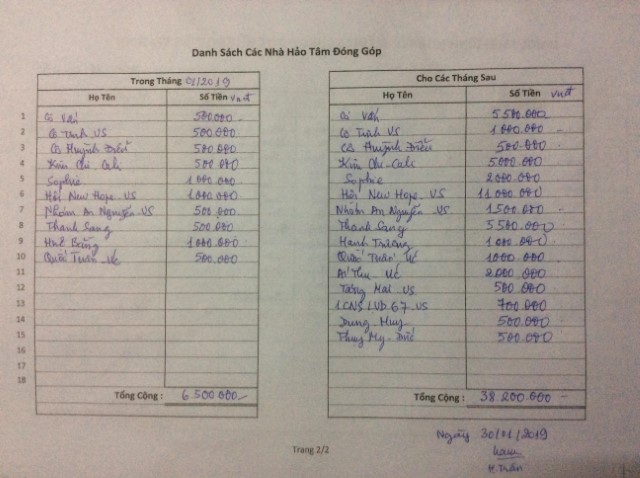 Danh Sách Các Nhà Hảo Tâm Đóng Góp
Trong Tháng 01/2019
Họ Tên Số Tiền vnđ
1 500.000
2 Cô Trinh VS 500.000
3 Cô Huỳnh Điểu 500.000
4 Kim Chi - Cali 500.000
5 Sophie 1.000.000
6 Hội New Hope VS 1.000.000
7 Nhóm An Nguyễn VS 500.000
8 Thanh Sang 500.000
9 Huê Bằng 1.000.000
10 Quốc Tuấn Úc 500.000
11
12
13
14
15
16
17
18
Tổng Cộng : 6.500.000
Cho Các Tháng Sau
Họ Tên Số Tiền vnđ
5.500.000
Cô Trinh VS 1.000.000
Cô Huỳnh Điểu 500.000
Kim Chi - Cali 5.000.000
Sophie 2.000.000
Hội New Hope VS 11.000.000
Nhóm An Nguyễn VS 1.500.000
Thanh Sang 5.500.000
Hạnh Trương 1.000.000
Quốc Tuấn Úc 1.000.000
Thu Úc 2.000.000
Mai VS 500.000
LVD 67 VS 700.000
Dung Huy 500.000
Thuy My - Đức 500.000
Tổng Cộng : 38.200.000
Ngày 30/01/2019
H. Trần
Trang 2/2